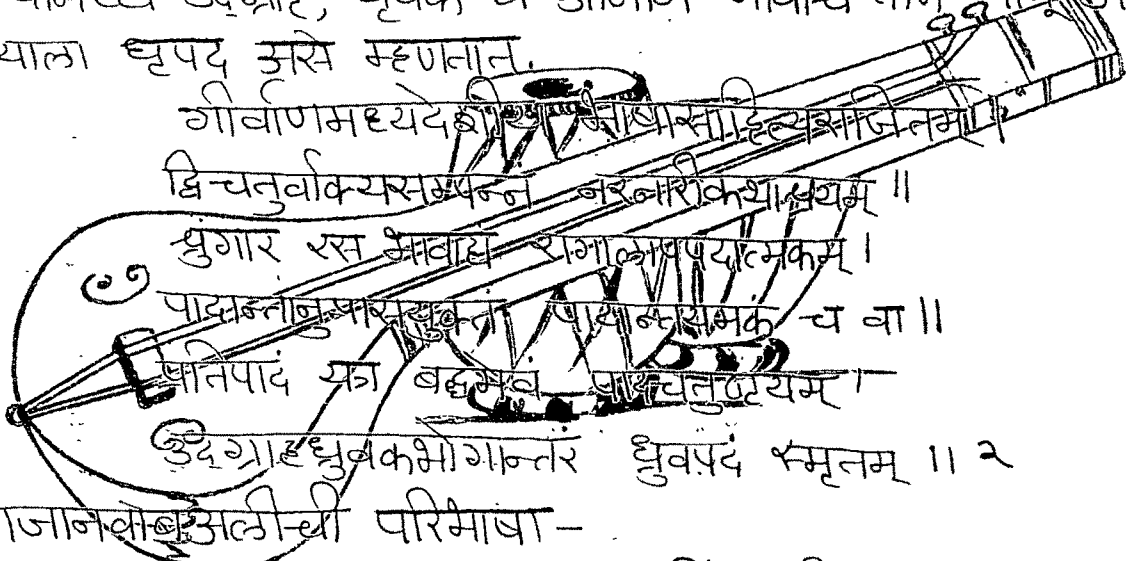 उद्ग्राह, ध्रुवक व
याला धृपद असे म्हणतात.
गीर्वाणमध्यदेशीय भाषासाहित्यराजितम् ।
द्वि-चतुर्वाक्यसम्पन्न नरनारीकथाश्रयम् ॥
श्रुंगार रस भावाद्य रागालापपदात्मकम् ।
पादान्तानुप्रासयुक्तं पादान्तयमकं च वा ॥
प्रतिपादं यत्र बद्धमेवं पादचतुष्टयम् ।
उद्ग्राहध्रुवकभोगान्तरं ध्रुवपदं स्मृतम् ॥ २
परिभाषा -